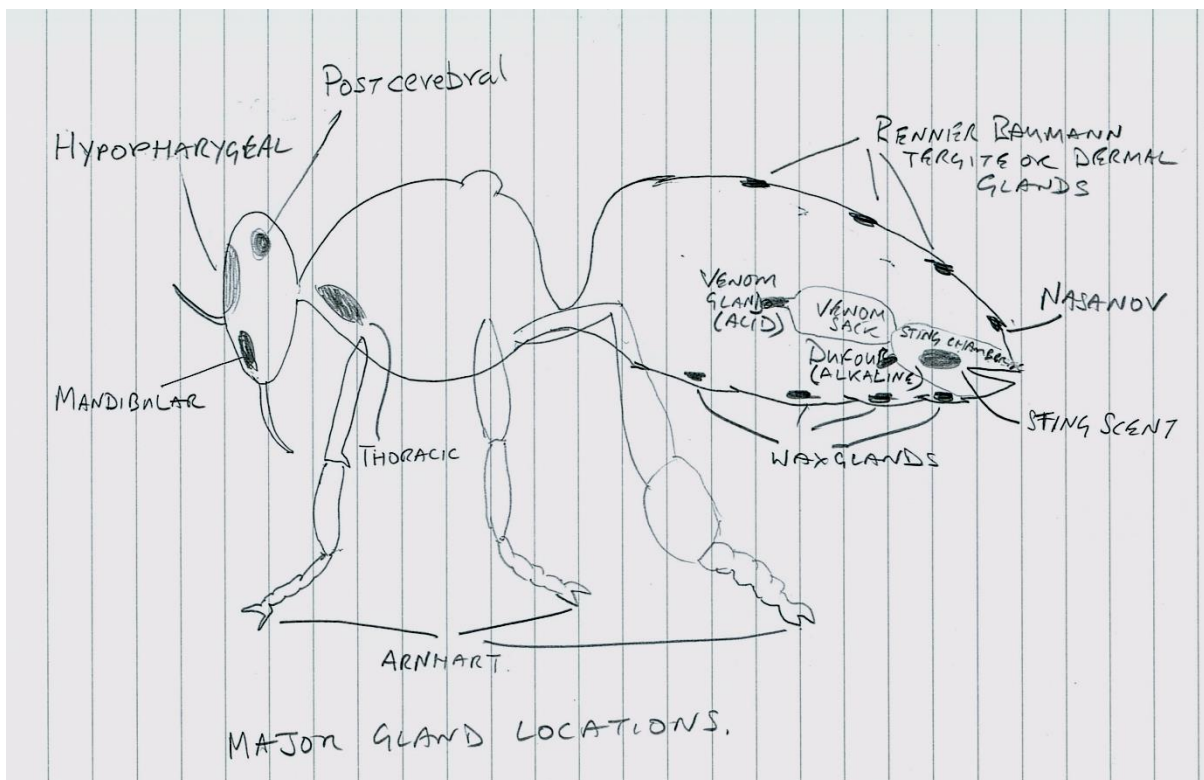 Postcerebral
HYPOPHARYGEAL
RENNIER BAUMANN
TERGITE OR DERMAL
GLANDS
VENOM
GLAND
(ACID)
VENOM
SACK
STING CHAMBER
NASANOV
DUFOUR
(ALKALINE)
MANDIBULAR
THORACIC
STING SCENT
WAX GLANDS
ARNHART.
MAJOR GLAND LOCATIONS.